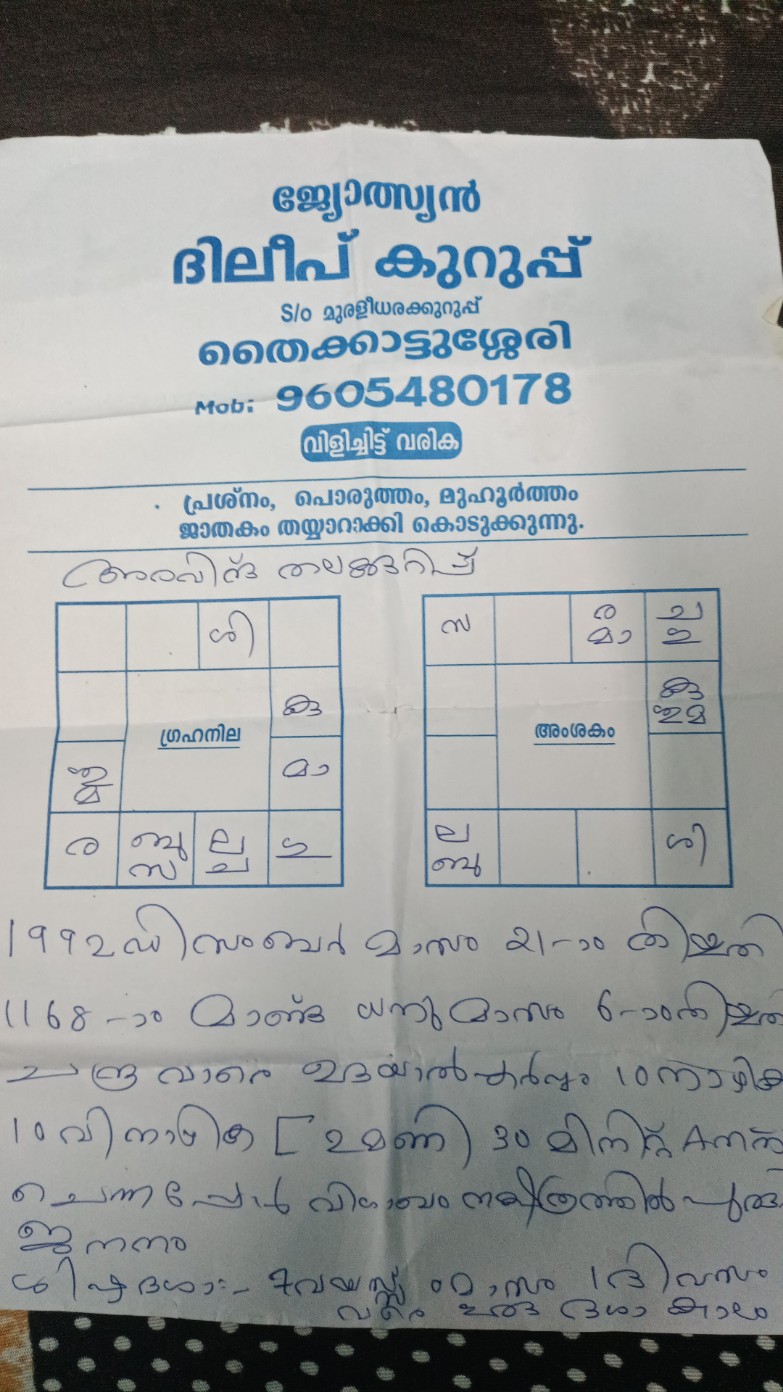 ജ്യോത്സ്യൻ
ദിലീപ് കുറുപ്പ്
S/o മുരളീധരക്കുറുപ്പ്
തൈക്കാട്ടുശ്ശേരി
Mob: 9605480178
വിളിച്ചിട്ട് വരിക
പ്രശ്നം, പൊരുത്തം, മുഹൂർത്തം
ജാതകം തയ്യാറാക്കി കൊടുക്കുന്നു.
അരവിന്ദ് തലക്കുറിപ്പ്
ശി
കു
ഗ്രഹനില
മാ
ര ബു ല
സ ച
സ ര ച
മാ
കു
അംശകം
ല ശി
ബു
1992 ഡിസംബർ മാസം 21-ാം തിയ്യതി
1168-ാം മാണ്ട് ധനുമാസം 6-ാം തിയ്യതി
ചന്ദ്രവാരെ ഉദയാൽപൂർവ്വം 10 നാഴിക
10 വിനാഴിക [ 2 മണി 30 മിനിറ്റ് A
ചെന്നപ്പോൾ വിശാഖം നക്ഷത്രത്തിൽ
ജനനം
ശിഷ്ടദശാ:- 7 വയസ്സ് മാസം 1 ദിവസം
വരെ ദശാ കാലം